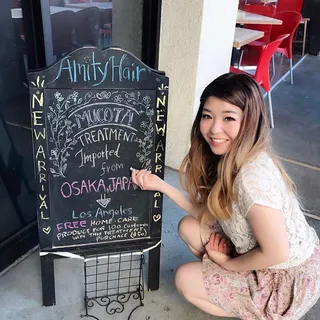 Amity Hair
NEW ARRIVAL
NEW ARRIVAL
MUCOTA
TREATMENT
Imported
from
OSAKA, JAPAN
Los Angeles
FREE HOME-CARE
PRODUCT FOR 100 Customer
WITH THIS TREATMENT
PURCHASE